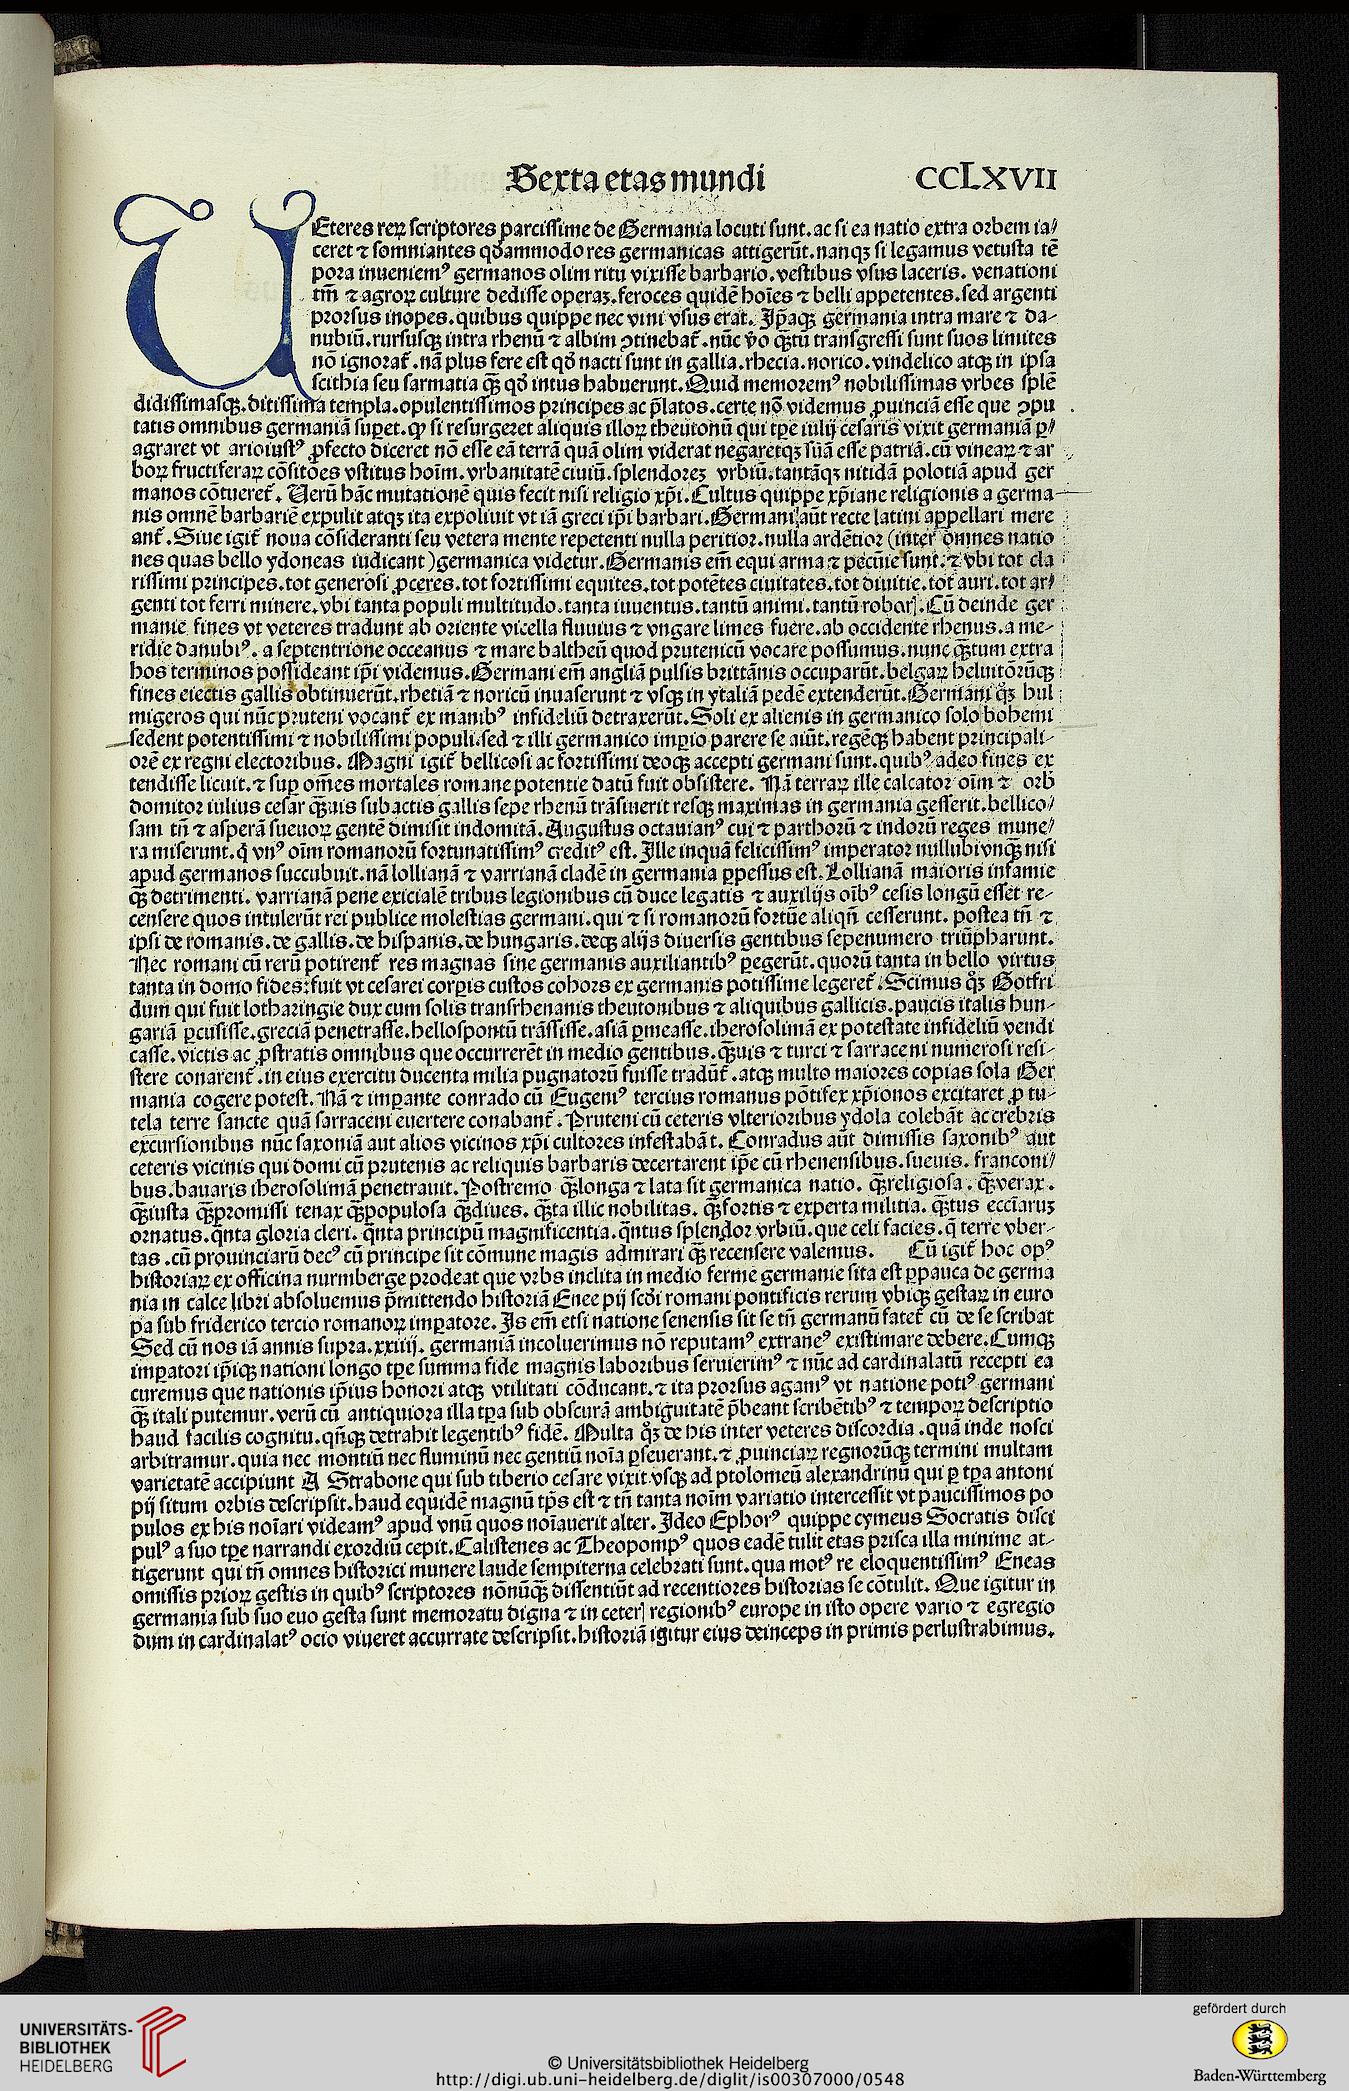 Sexta etas mundi CCLXVII
UEteres reꝝ scriptores parcissime de Germania locuti sunt.ac si ea natio extra orbem ia/
ceret ⁊ somniantes qđammodo res germanicas attigerūt.nanqȝ si legamus vetusta tē
pora inueniemꝰ germanos olim ritu vixisse barbario.vestibus vsus laceris. venationi
tm̄ ⁊ agroꝝ culture dedisse operaȝ.feroces quidē hoīes ⁊ belli appetentes.sed argenti
prorsus inopes.quibus quippe nec vini vsus erat. Ip̄aqȝ germania intra mare ⁊ da-
nubiū.rursusqȝ intra rhenū ⁊ albim ꝯtinebat᷑.nūc v̄o qȝ̄tū transgressi sunt suos limites
nō ignorat᷑.nā plus fere est qđ nacti sunt in gallia.rhecia.norico.vindelico atqȝ in ipsa
scithia seu sarmatia qȝ̄ qđ intus habuerunt.Quid memoremꝰ nobilissimas vrbes splē
didissimasqȝ.ditissima templa.opulentissimos principes ac p̄latos.certe nō videmus ꝓuinciā esse que ꝯpu
tatis omnibus germaniā suꝑet.ꝙ si resurgeret aliquis illoꝝ theutonū qui tꝑe iulij cesaris vixit germaniā ꝑ/
agraret vt arioiustꝰ ꝓfecto diceret nō esse eā terrā quā olim viderat negaretqȝ suā esse patriā.cū vineaꝝ ⁊ ar
boꝝ fructiferaꝝ cōsitōes vstitus hoīm.vrbanitatē ciuiū.splendoreȝ vrbiū.tantāqȝ nitidā polotiā apud ger
manos cōtueret᷑. Uerū hāc mutationē quis fecit nisi religio xp̄i.Cultus quippe xp̄iane religionis a germa-
nis omnē barbariē expulit atqȝ ita expoliuit vt iā greci ip̄i barbari.Germani aūt recte latini appellari mere
ant᷑.Siue igit᷑ noua cōsideranti seu vetera mente repetenti nulla peritior.nulla ardētior (inter omnes natio
nes quas bello ydoneas iudicant)germanica videtur.Germanis em̄ equi arma ⁊ pecūie sunt.⁊ vbi tot cla
rissimi principes.tot generosi ꝓceres.tot fortissimi equites.tot potētes ciuitates.tot diuitie.tot auri.tot ar/
genti tot ferri minere.vbi tanta populi multitudo.tanta iuuentus.tantū animi.tantū roborꝭ.Cū deinde ger
manie fines vt veteres tradunt ab oriente vicella fluuius ⁊ vngare limes fuere.ab occidente rhenus.a me-
ridie danubiꝰ.a septentrione occeanus ⁊ mare baltheū quod prutenicū vocare possumus.nunc qȝ̄tum extra
hos terminos possideant ip̄i videmus.Germani em̄ angliā pulsis brittānis occuparūt.belgaꝝ heluitōrūqȝ
fines eiectis gallis obtinuerūt.rhetiā ⁊ noricū inuaserunt ⁊ vsqȝ in ytaliā pedē extenderūt.Germani qͦȝ hul
migeros qui nūc pruteni vocant᷑ ex manibꝰ infideliū detraxerūt.Soli ex alienis in germanico solo bohemi
sedent potentissimi ⁊ nobilissimi populi.sed ⁊ illi germanico imꝑio parere se aiūt.regēqȝ habent principali-
orē ex regni electoribus. Magni igit᷑ bellicosi ac fortissimi deoqȝ accepti germani sunt.quibꝰ adeo fines ex
tendisse licuit.⁊ suꝑ om̄es mortales romane potentie datū fuit obsistere. Nā terraꝝ ille calcator oīm ⁊ orb
domitor iulius cesar qȝ̄uis subactis gallis sepe rhenū trāsiuerit resqȝ maximas in germania gesserit.bellico/
sam tn̄ ⁊ asperā sueuoꝝ gentē dimisit indomitā.Augustus octauianꝰ cui ⁊ parthorū ⁊ indorū reges mune/
ra miserunt.q̄ vnꝰ oīm romanorū fortunatissimꝰ creditꝰ est. Ille inquā felicissimꝰ imperator nullubi vnqȝ̄ nisi
apud germanos succubuit.nā lollianā ⁊ varrianā cladē in germania ꝑpessus est.Lollianā maioris infamie
qȝ̄ detrimenti. varrianā pene exicialē tribus legionibus cū duce legatis ⁊ auxilijs oībꝰ cesis longū esset re-
censere quos intulerūt rei publice molestias germani.qui ⁊ si romanorū fortūe aliqn̄ cesserunt. postea tn̄ ⁊
ipsi de romanis.de gallis.de hispanis.de hungaris.deqȝ alijs diuersis gentibus sepenumero triūpharunt.
Nec romani cū rerū potirent᷑ res magnas sine germanis auxiliantibꝰ ꝑegerūt.quorū tanta in bello virtus
tanta in domo fides:fuit vt cesarei corꝑis custos cohors ex germanis potissime legeret᷑.Scimus qͦȝ Gotfri
dum qui fuit lotharingie dux cum solis transrhenanis theutonibus ⁊ aliquibus gallicis.paucis italis hun-
gariā ꝑcusisse.greciā penetrasse.hellospontū trāssisse.asiā ꝑmeasse.iherosolimā ex potestate infideliū vendi
casse.victis ac ꝓstratis omnibus que occurrerēt in medio gentibus.qȝ̄uis ⁊ turci ⁊ sarraceni numerosi resi-
stere conarent᷑.in eius exercitu ducenta milia pugnatorū fuisse tradūt᷑.atqȝ multo maiores copias sola Ger
mania cogere potest. Nā ⁊ imꝑante conrado cū Eugeniꝰ tercius romanus pōtifex xp̄ionos excitaret ꝓ tu-
tela terre sancte quā sarraceni euertere conabant᷑. Pruteni cū ceteris vlterioribus ydola colebāt ac crebris
excursionibus nūc saxoniā aut alios vicinos xp̄i cultores infestabāt. Conradus aūt dimissis saxonibꝰ aut
ceteris vicinis qui domi cū prutenis ac reliquis barbaris decertarent ip̄e cū rhenensibus.sueuis. franconi/
bus.bauaris iherosolimā penetrauit.Postremo qȝ̄longa ⁊ lata sit germanica natio. qȝ̄religiosa. qȝ̄verax.
qȝ̄iusta qȝ̄promissi tenax qȝ̄populosa qȝ̄diues. qȝ̄ta illic nobilitas. qȝ̄fortis ⁊ experta militia. qȝ̄tus ecciaruȝ
ornatus.qn̄ta gloria cleri. qn̄ta principū magnificentia.qn̄tus splendor vrbiū.que celi facies.q̄ terre vber-
tas .cū prouinciarū decꝰ cū principe sit cōmune magis admirari qȝ̄ recensere valemus. Cū igit᷑ hoc opꝰ
historiaꝝ ex officina nurmberge prodeat que vrbs inclita in medio ferme germanie sita est ꝑpauca de germa
nia in calce libri absoluemus p̄mittendo historiā Enee pij scđi romani pontificis rerum vbiqȝ gestaꝝ in euro
pa sub friderico tercio romanoꝝ imꝑatore. Is em̄ etsi natione senensis sit se tn̄ germanū fatet᷑ cū de se scribat
Sed cū nos iā annis supra.xxiiij. germaniā incoluerimus nō reputamꝰ extraneꝰ existimare debere.Cumqȝ
imꝑatori ip̄iqȝ nationi longo tꝑe summa fide magnis laboribus seruierimꝰ ⁊ nūc ad cardinalatū recepti ea
curemus que nationis ip̄ius honori atqȝ vtilitati cōducant.⁊ ita prorsus agamꝰ vt natione potiꝰ germani
qȝ̄ itali putemur.verū cū antiquiora illa tꝑa sub obscurā ambiguitatē p̄beant scribētibꝰ ⁊ tempoꝝ descriptio
haud facilis cognitu.qn̄qȝ detrahit legentibꝰ fidē. Multa qͦȝ de his inter veteres discordia.quā inde nosci
arbitramur.quia nec montiū nec fluminū nec gentiū noīa ꝑseuerant.⁊ ꝓuinciaꝝ regnorūqȝ termini multam
varietatē accipiunt A Strabone qui sub tiberio cesare vixit vsqȝ ad ptolomeū alexandrinū qui ꝑ tꝑa antoni
pij situm orbis descripsit.haud equidē magnū tp̄s est ⁊ tn̄ tanta noīm variatio intercessit vt paucissimos po
pulos ex his noīari videamꝰ apud vnū quos noīauerit alter. Ideo Ephorꝰ quippe cymeus Socratis disci
pulꝰ a suo tꝑe narrandi exordiū cepit.Calistenes ac Theopompꝰ quos eadē tulit etas prisca illa minime at-
tigerunt qui tn̄ omnes historici munere laude sempiterna celebrati sunt.qua motꝰ re eloquentissimꝰ Eneas
omissis prioꝝ gestis in quibꝰ scriptores nōnūqȝ̄ dissentiūt ad recentiores historias se cōtulit. Que igitur in
germania sub suo euo gesta sunt memoratu digna ⁊ in ceterꝭ regionibꝰ europe in isto opere vario ⁊ egregio
dum in cardinalatꝰ ocio viueret accurrate descripsit.historiā igitur eius deinceps in primis perlustrabimus.
UNIVERSITÄTS-
BIBLIOTHEK
HEIDELBERG
© Universitätsbibliothek Heidelberg
http://digi.ub.uni-heidelberg.de/diglit/is00307000/0548
gefördert durch
Baden-Württemberg